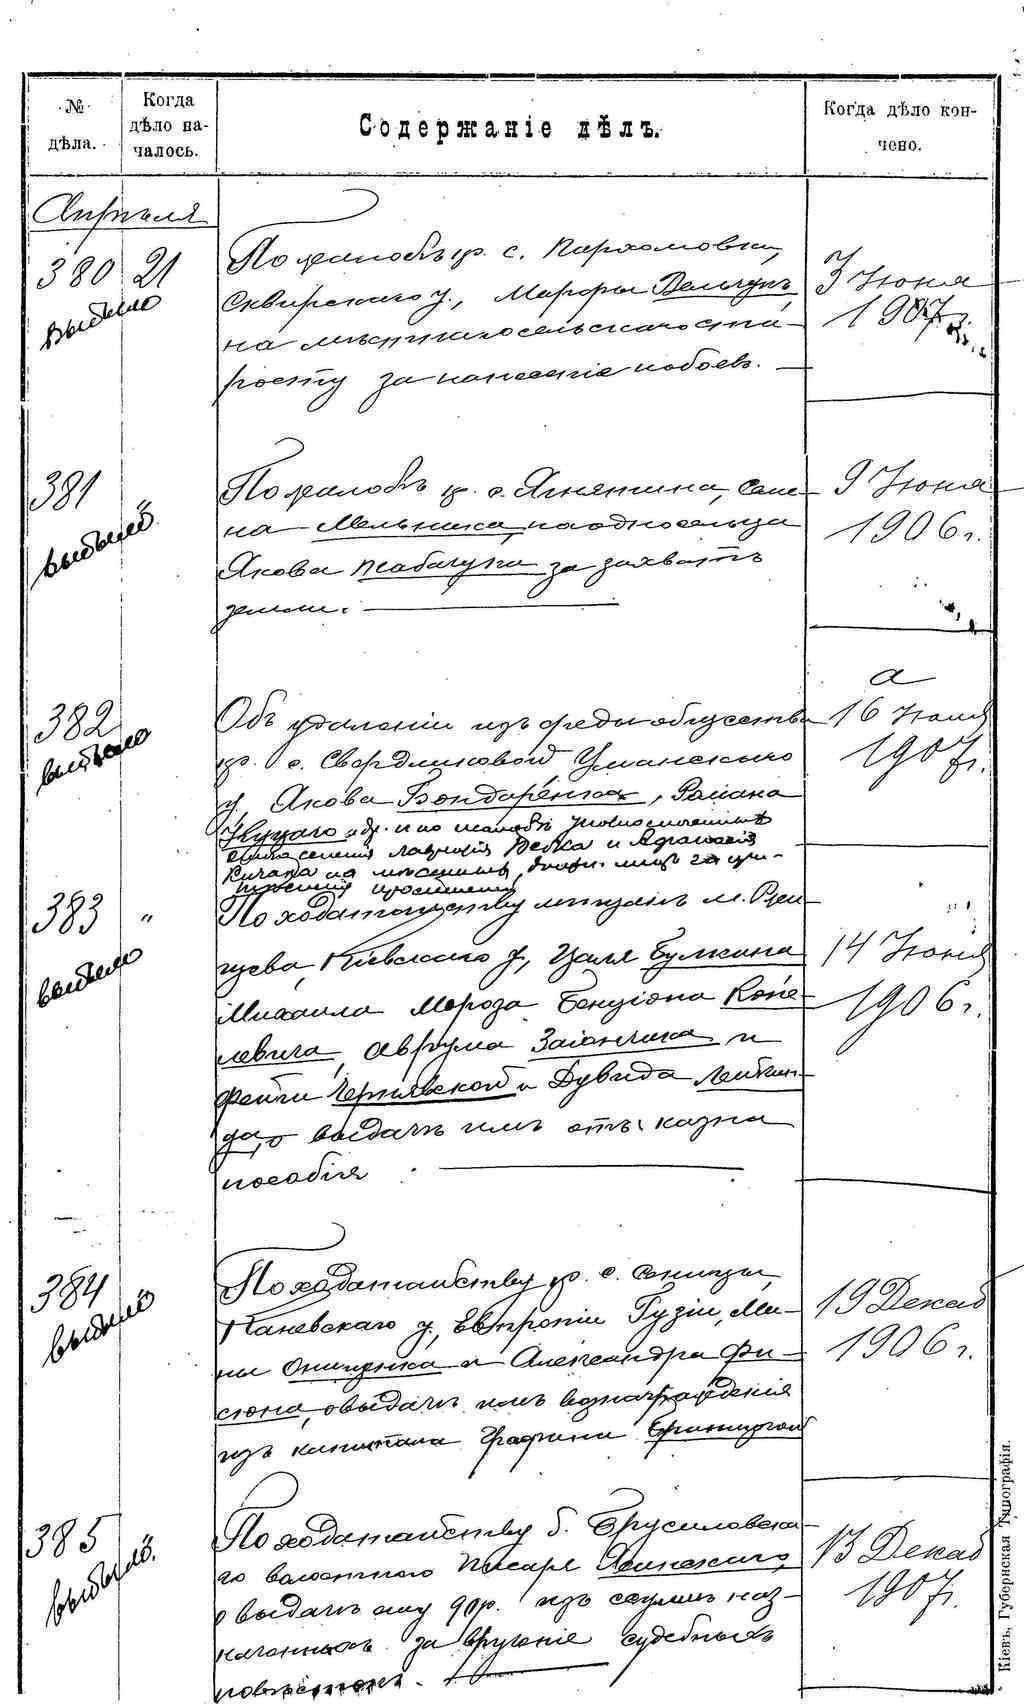 № дѣла.
Когда
дѣло на-
чалось.
Содержаніе дѣлъ.
Когда дѣло кон-
чено.
Апрѣля
380 21
выбыло
По жалобѣ кр. с. Пархомовки,
Сквирскаго у., Марфы Вельчукъ
на мѣстнаго сельскаго ста-
росту за нанесеніе побоевъ.
3 Іюня
1907 г.
381 "
выбыло
По жалобѣ кр. с. Ягнятина, Семе-
на Мельника, на односельца
Якова Табачука за захватъ
земли.
9 Іюня
1906 г.
382
выбыло
Объ удаленіи изъ среды общества
кр. с. Свердликовой Уманскаго
у. Якова Бондаренка, Романа
и др. и по жалобѣ уполномоченныхъ
и Афанасія
Кичака на мѣстныхъ, лицъ за
а
16 Іюля
1907 г.
383 "
выбыло
По ходатайству мѣщанъ м. Ржи-
щева Кіевскаго у., Цаля Булкина
Михаила Мороза Бенціона Копе-
левича, Аврума Заіончика и
Фейги Чернявской и Дувида Лейбзан-
да, о выдачѣ имъ отъ казны
пособія
14 Іюня
1906 г.
384
выбыло
По ходатайству кр. с. Синицы,
Каневскаго у., Евпроніи Гузіи, Ми-
ны Онищенка и Александра Фи-
сюна, о выдачѣ имъ вознагражденія
изъ капитала Графини Браницкой
19 Декаб
1906 г.
385 "
выбыло.
По ходатайству б. Брусиловска-
го волостного писаря Ясинскаго,
о выдачѣ ему 90 р. изъ суммъ наз-
наченныхъ за врученіе судебныхъ
повѣстокъ.
13 Декаб
1907 г.
Кіевъ, Губернская Типографія.